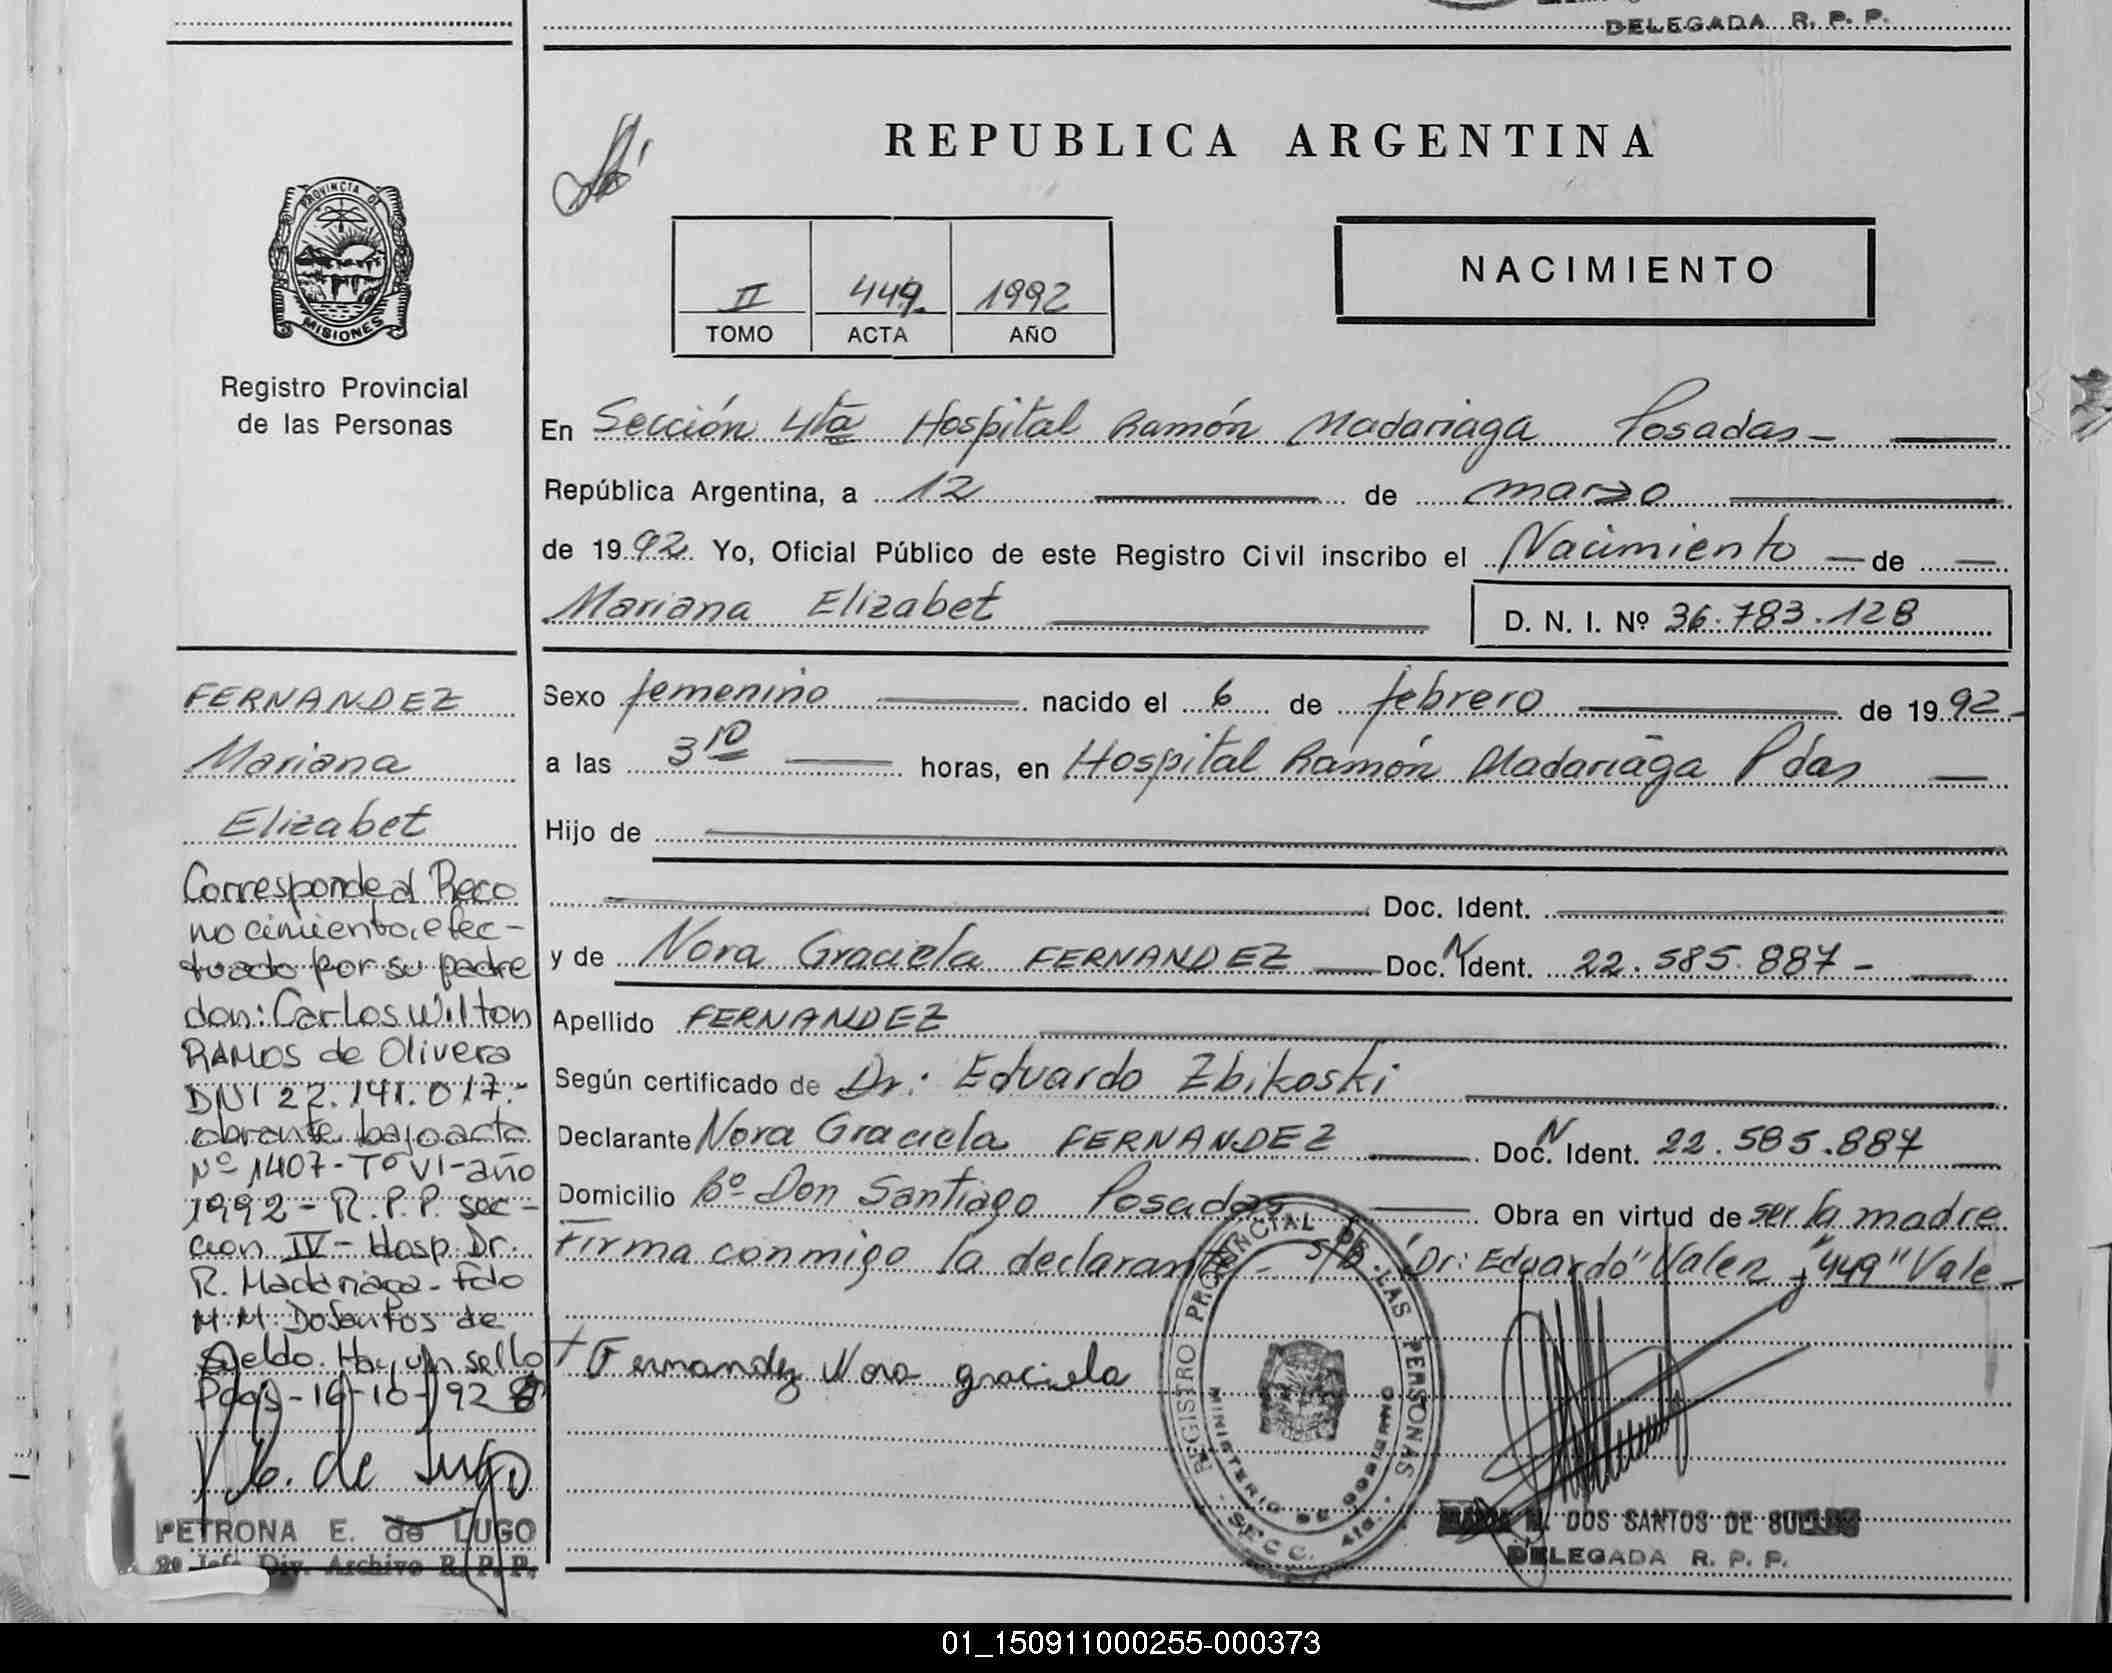 DELEGADA R. P. P.
REPUBLICA ARGENTINA
PROVINCIA DE
MISIONES
Registro Provincial
de las Personas
II 449. 1992
TOMO ACTA AÑO
NACIMIENTO
En Sección 4ta Hospital Ramón Madariaga Posadas-
República Argentina, a 12 de marzo
de 1992 Yo, Oficial Público de este Registro Civil inscribo el Nacimiento de
Mariana Elizabet D. N. I. Nº 36.783.128
Sexo femenino nacido el 6 de febrero de 1992-
a las 3 10 horas, en Hospital Ramón Madariaga Pdas
Hijo de
Doc. Ident.
y de Nora Graciela FERNANDEZ Doc. N Ident. 22.585.887-
Apellido FERNANDEZ
Según certificado de Dr: Eduardo Zbikoski
Declarante Nora Graciela FERNANDEZ Doc. N Ident. 22.585.887
Domicilio Bº Don Santiago Posadas Obra en virtud de ser la madre
Firma conmigo la declarante - s/b "Dr: Eduardo" Valen y "449" Vale-
Fernandez Nora graciela
REGISTRO PROVINCIAL DE LAS PERSONAS
MINISTERIO DE GOBIERNO
SECC. 4ta.
DOS SANTOS DE SUELDO
DELEGADA R. P. P.
FERNANDEZ
Mariana
Elizabet
Corresponde al Reco
nocimiento efec-
tuado por su padre
don: Carlos Wilton
RAMOS de Olivera
DNI 22.141.017.-
obrante bajo acta
Nº 1407-Tº VI-año
1992-R.P.P. sec-
cion IV-Hosp. Dr.
R. Madariaga-Fdo
M.M. DoSantos de
Sueldo. Hay un sello
Pdas-16-10-92
de Lugo
PETRONA E. de LUGO
2º Jefe Div. Archivo R. P. P.
01_150911000255-000373